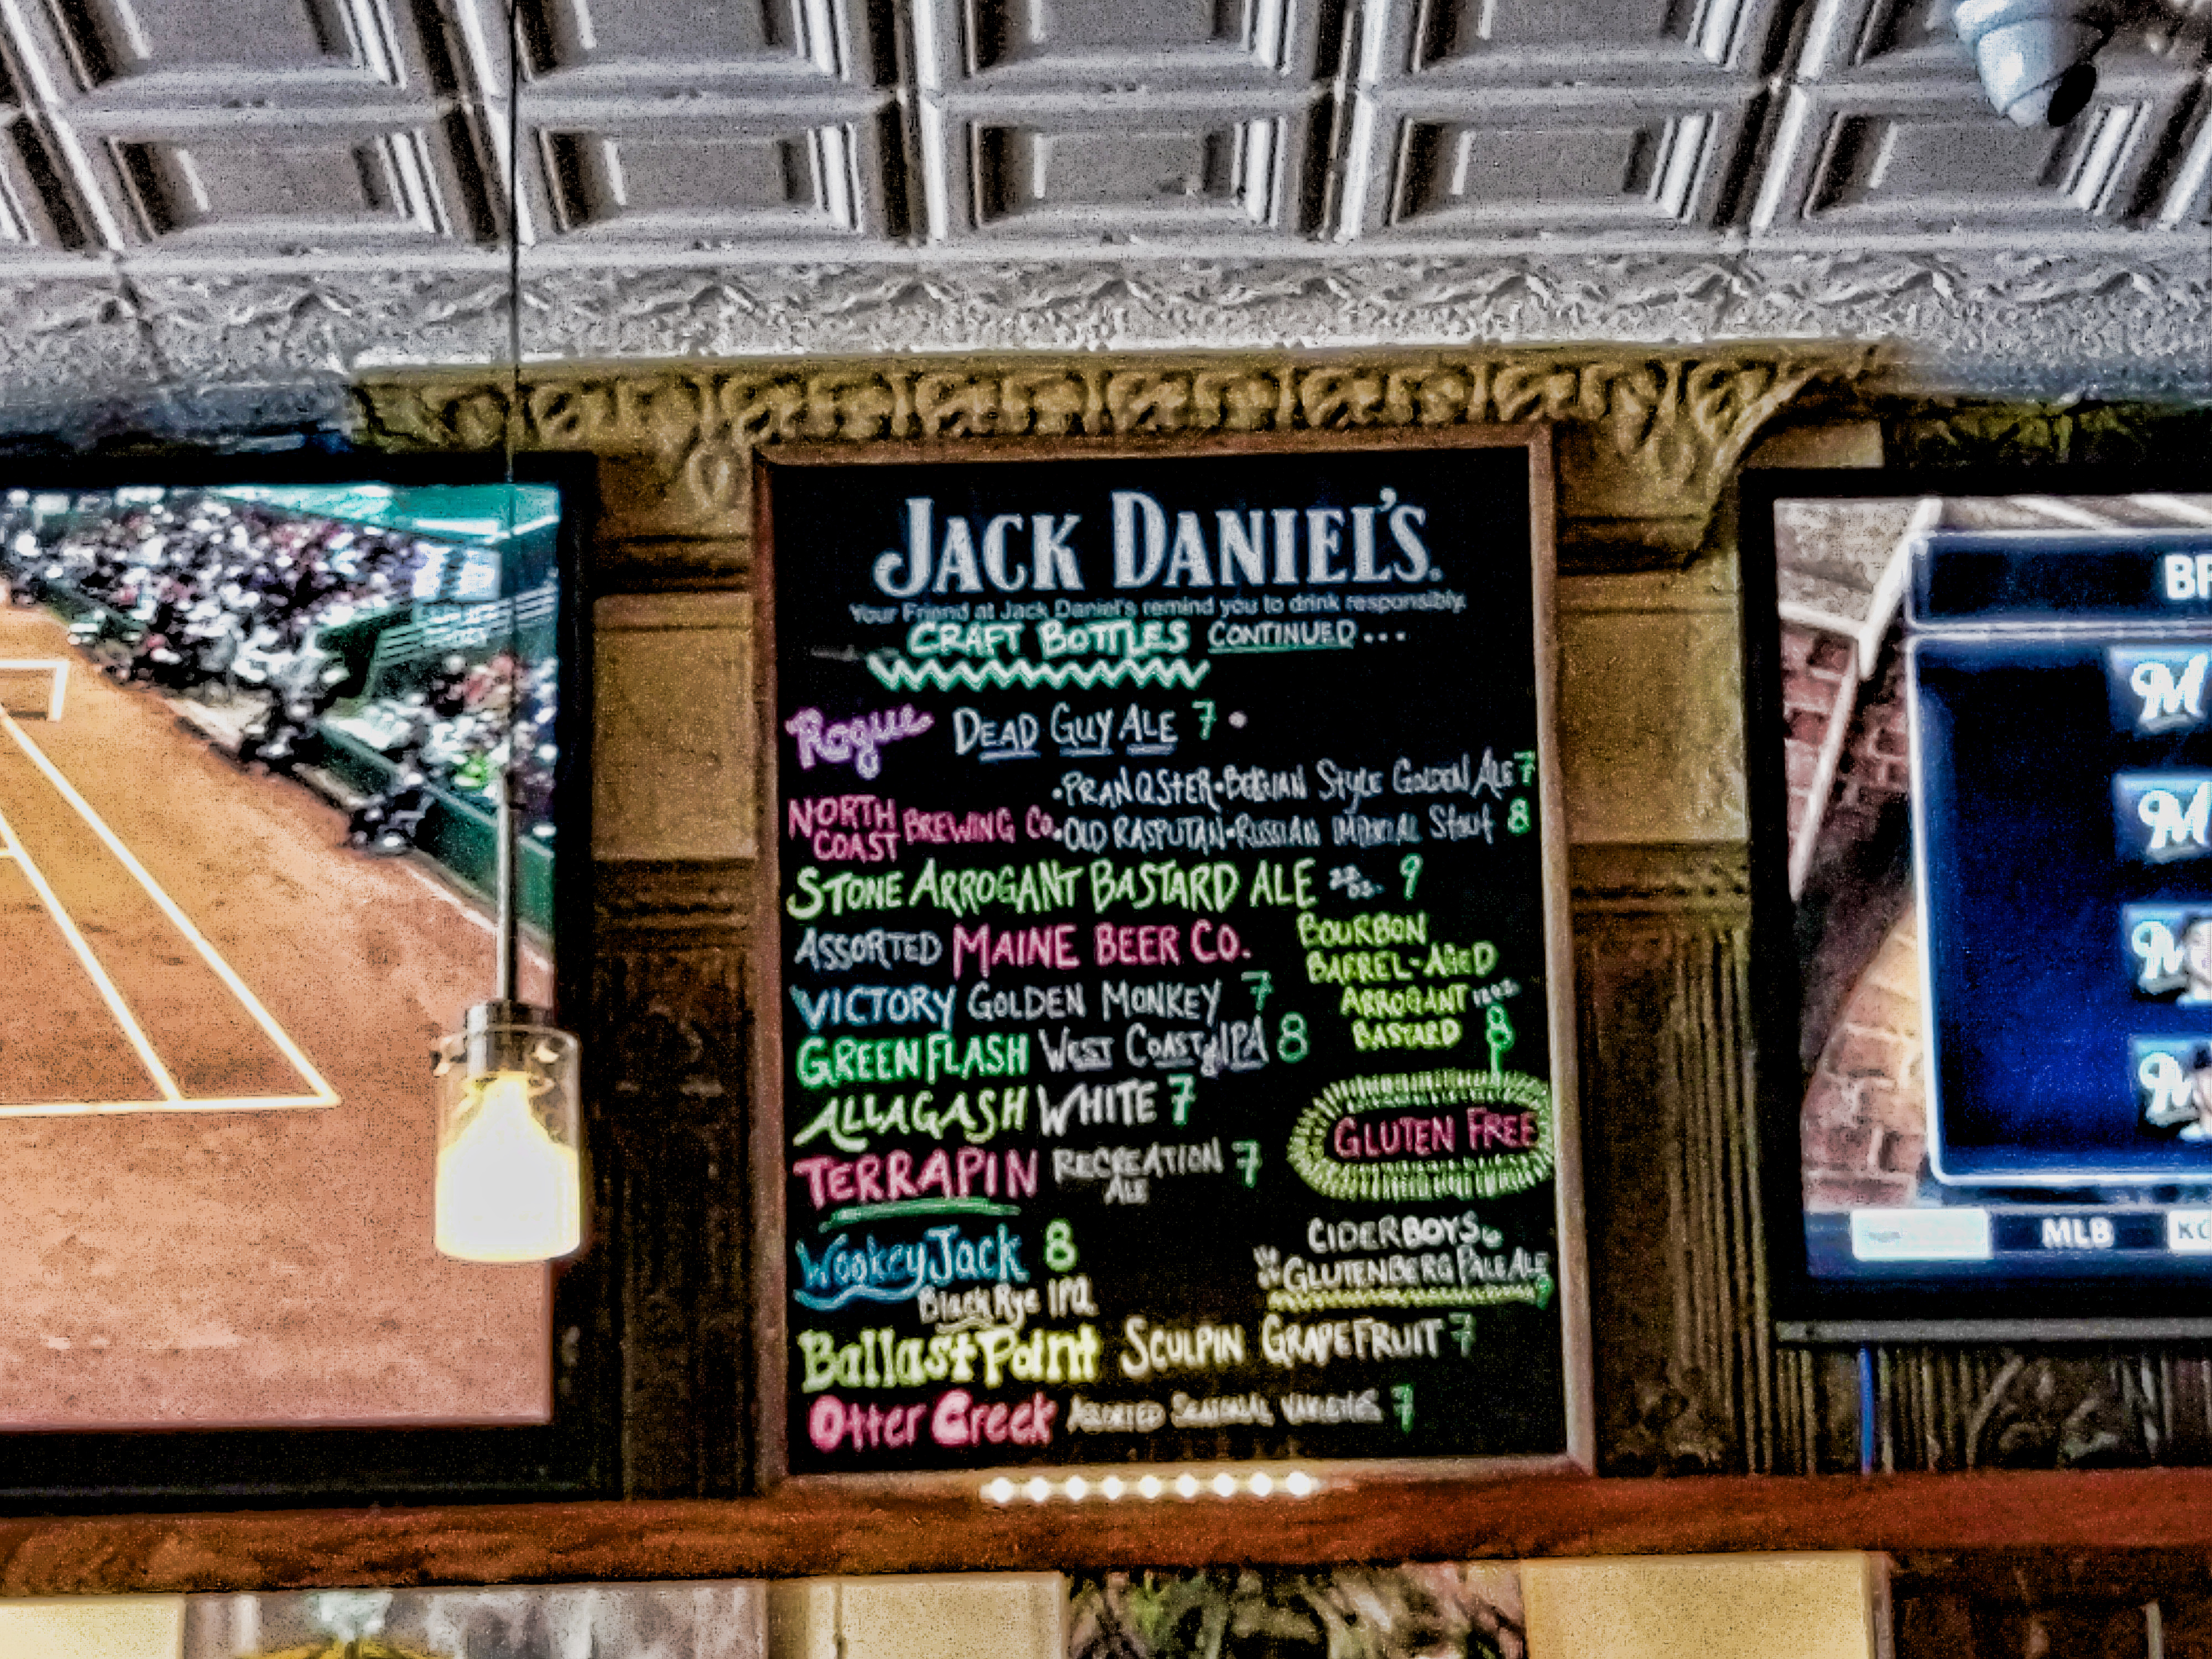 JACK DANIEL'S.
Your Friend at Jack Daniel's remind you to drink responsibly.
CRAFT BOTTLES CONTINUED...
Rogue DEAD GUY ALE 7 •
• PRANQSTER • BELGIAN Style GOLDEN ALE 7
NORTH COAST BREWING Co. • OLD RASPUTAN • RUSSIAN IMPERIAL Stout 8
STONE ARROGANT BASTARD ALE 22 oz. 9
ASSORTED MAINE BEER CO.
BOURBON
BARREL-AGED
ARROGANT 12oz
BASTARD 8
VICTORY GOLDEN MONKEY 7
GREEN FLASH WEST COAST IPA 8
ALLAGASH WHITE 7
GLUTEN FREE
TERRAPIN RECREATION ALE 7
CIDERBOYS 6
GLUTENBERG PALE ALE 9
Wookey Jack 8
Black Rye IPA
Ballast Point SCULPIN GRAPEFRUIT 7
Otter Creek ASSORTED SEASONAL VARIETIES 7
M
M
M
M
MLB